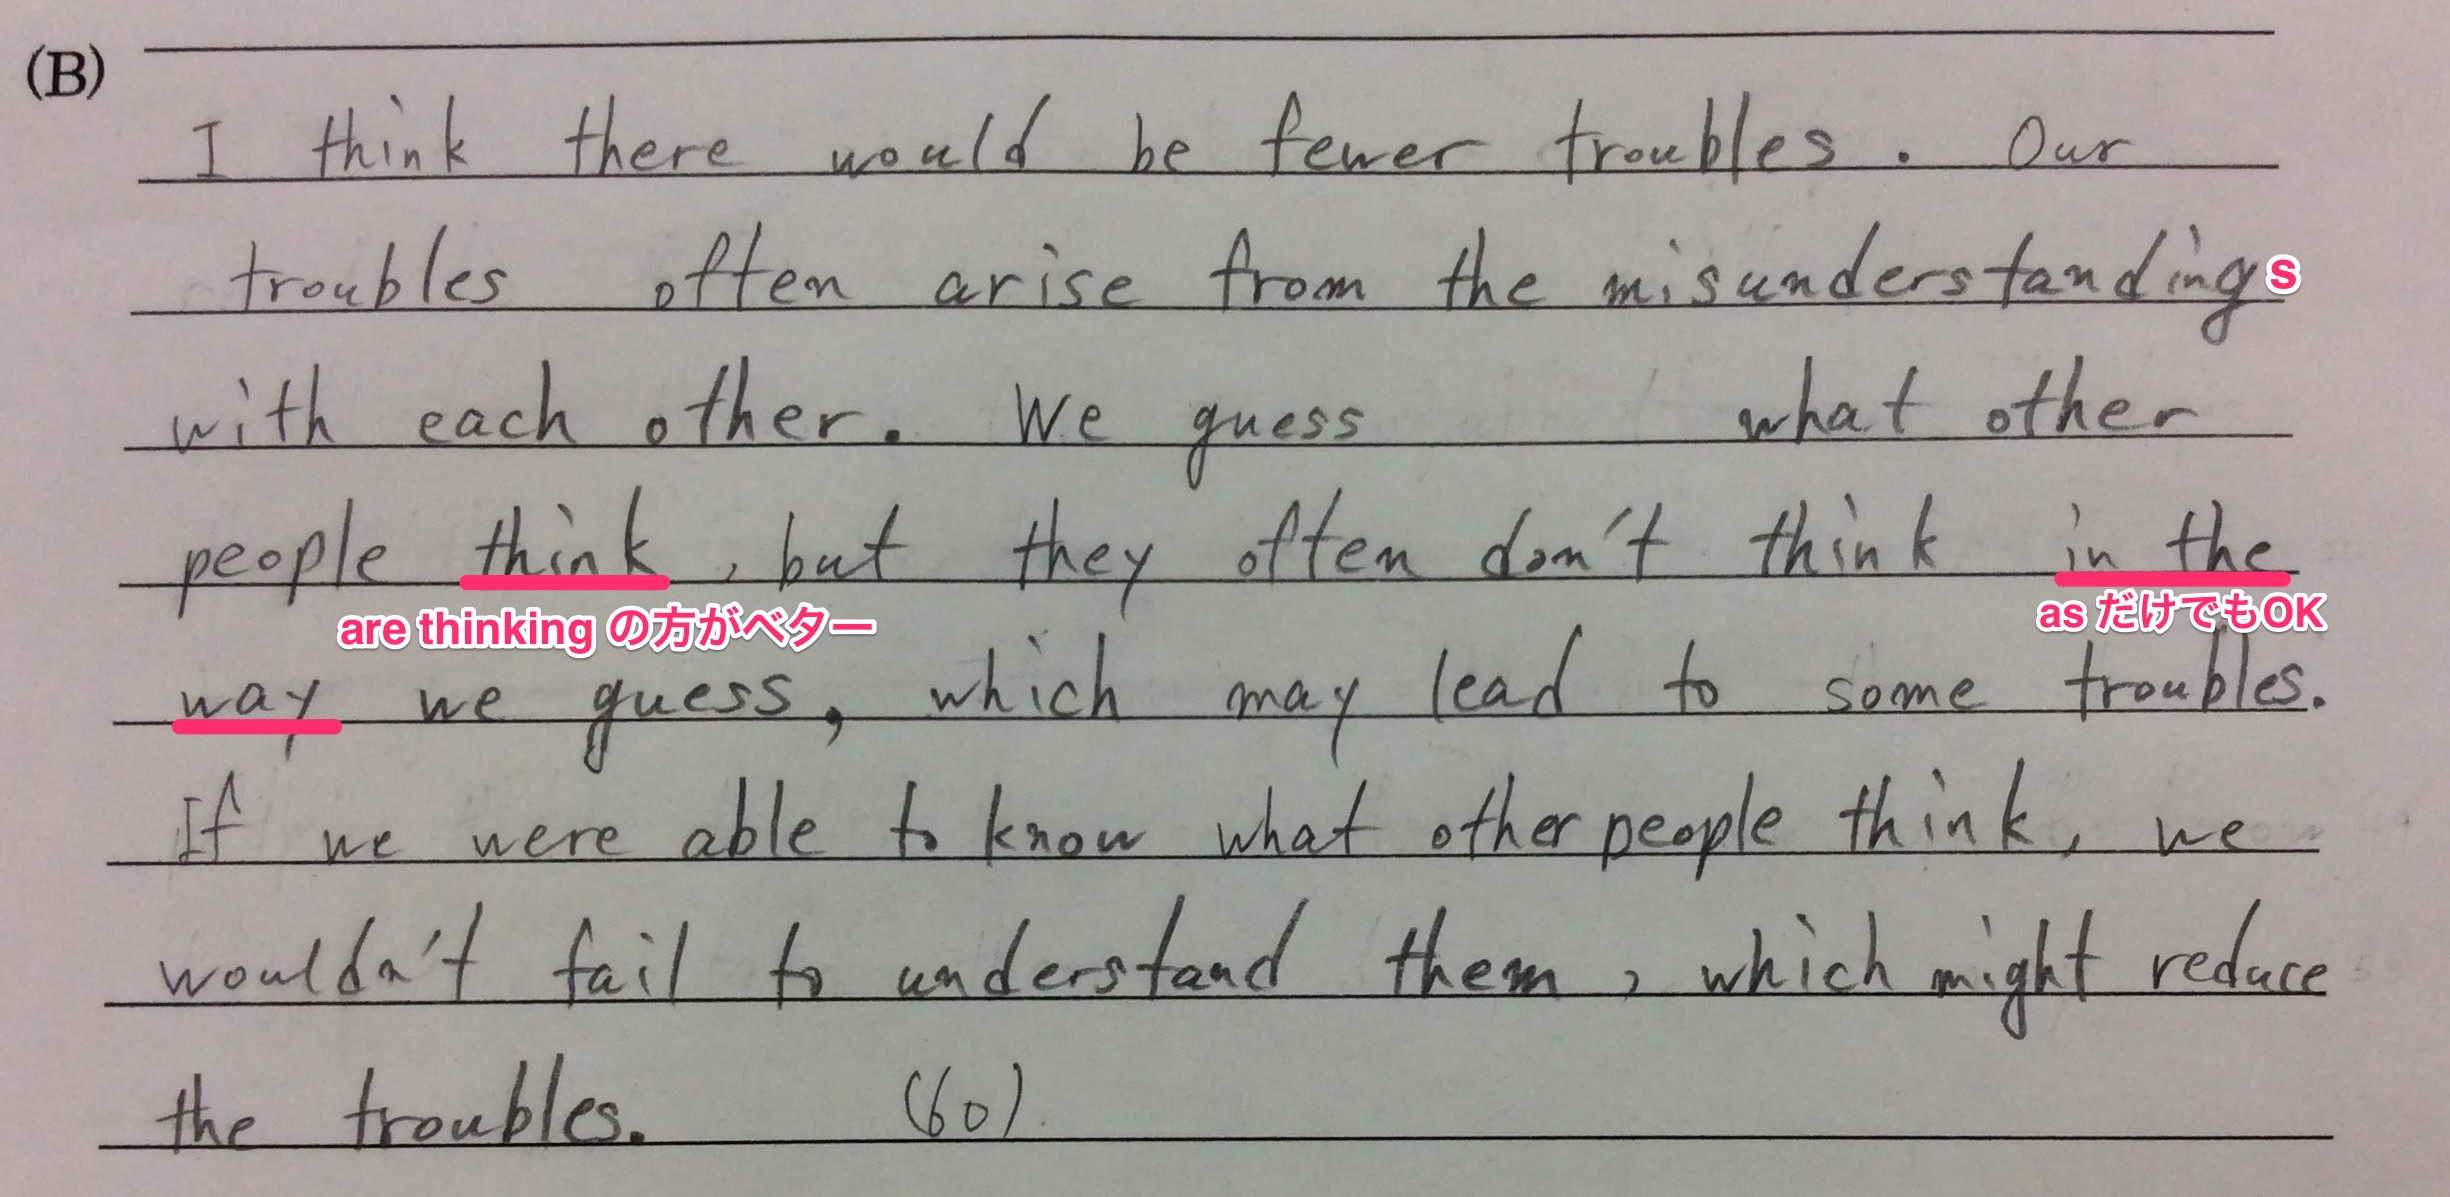 (B)
I think there would be fewer troubles. Our
troubles often arise from the misunderstandings
with each other. We guess what other
people think, but they often don't think in the
are thinking の方がベター
as だけでもOK
way we guess, which may lead to some troubles.
If we were able to know what other people think, we
wouldn't fail to understand them, which might reduce
the troubles. (60)